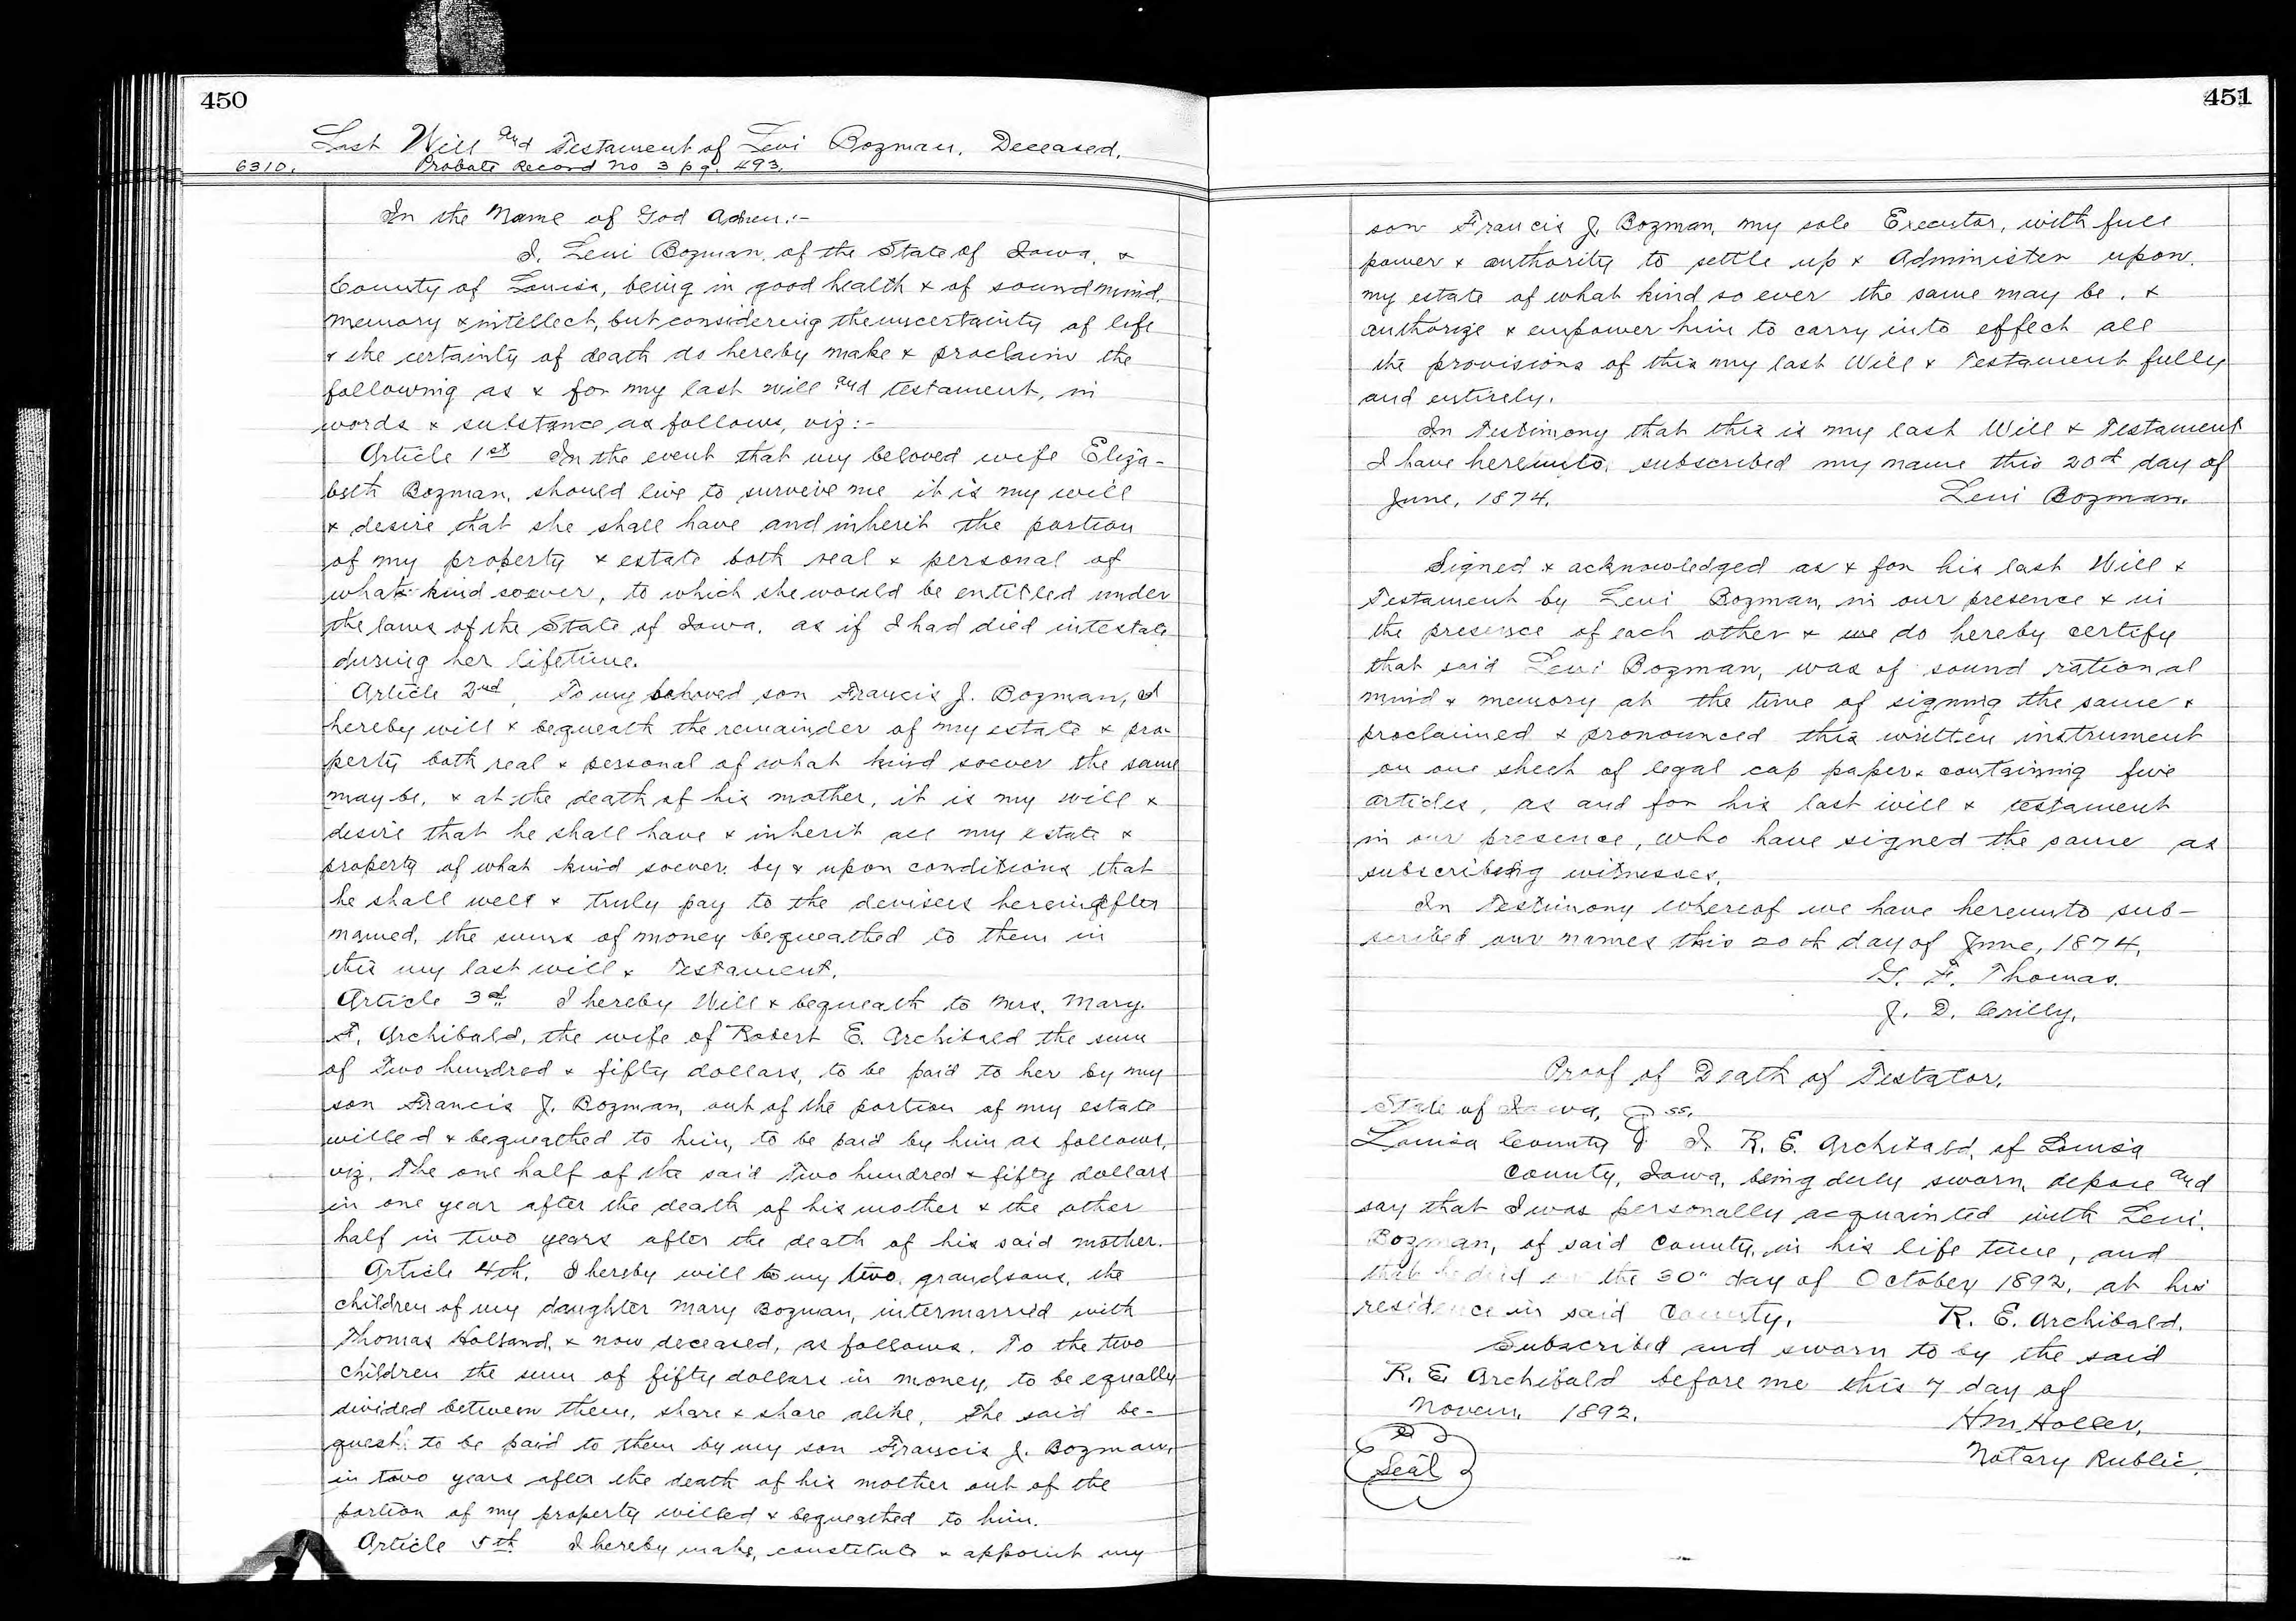 450
Last Will and Testament of Levi Bozman, Deceased.
6310. Probate Record No 3 pg. 493.
In the Name of God Amen:-
I, Levi Bozman, of the State of Iowa, &
County of Louisa, being in good health & of sound mind,
memory & intellect, but considering the uncertainty of life
& the certainty of death do hereby make & proclaim the
following as & for my last will and testament, in
words & substance as follows, viz:-
Article 1st In the event that my beloved wife Eliza-
beth Bozman, should live to survive me it is my will
& desire that she shall have and inherit the portion
of my property & estate both real & personal of
what kind soever, to which she would be entitled under
the laws of the State of Iowa, as if I had died intestate
during her lifetime.
Article 2nd, To my beloved son Francis J. Bozman, I
hereby will & bequeath the remainder of my estate & pro-
perty both real & personal of what kind soever the same
may be, & at the death of his mother, it is my will &
desire that he shall have & inherit all my estate &
property of what kind soever, by & upon conditions that
he shall well & truly pay to the devisees hereinafter
named, the sums of money bequeathed to them in
this my last will & Testament.
Article 3d I hereby Will & bequeath to Mrs. Mary
F. Archibald, the wife of Robert E. Archibald the sum
of Two hundred & fifty dollars, to be paid to her by my
son Francis J. Bozman, out of the portion of my estate
willed & bequeathed to him, to be paid by him as follows,
viz. The one half of the said Two hundred & fifty dollars
in one year after the death of his mother & the other
half in two years after the death of his said mother.
Article 4th. I hereby will to my two grandsons, the
children of my daughter Mary Bozman, intermarried with
Thomas Holland, & now deceased, as follows. To the two
children the sum of fifty dollars in money, to be equally
divided between them, share & share alike, The said be-
quest to be paid to them by my son Francis J. Bozman,
in two years after the death of his mother out of the
portion of my property willed & bequeathed to him.
Article 5th I hereby make, constitute & appoint my
451
son Francis J. Bozman, my sole Executor, with full
power & authority to settle up & Administer upon
my estate of what kind so ever the same may be, &
authorize & empower him to carry into effect all
the provisions of this my last Will & Testament fully
and entirely.
In Testimony that this is my last Will & Testament
I have hereunto, subscribed my name this 20th day of
June, 1874. Levi Bozman.
Signed & acknowledged as & for his last Will &
Testament by Levi Bozman, in our presence & in
the presence of each other & we do hereby certify
that said Levi Bozman, was of sound rational
mind & memory at the time of signing the same &
proclaimed & pronounced this written instrument
on one sheet of legal cap paper & containing five
articles, as and for his last will & testament
in our presence, who have signed the same as
subscribing witnesses.
In Testimony whereof we have hereunto sub-
scribed our names this 20th day of June, 1874.
G. F. Thomas.
J. D. Crilly.
Proof of Death of Testator.
State of Iowa, } ss.
Louisa County } I. R. E. Archibald, of Louisa
County, Iowa, being duly sworn, depose and
say that I was personally acquainted with Levi
Bozman, of said County, in his life time, and
that he died on the 30" day of October 1892, at his
residence in said County. R. E. Archibald.
Subscribed and sworn to by the said
R. E. Archibald before me this 7 day of
Novem. 1892. H M Holler,
Seal Notary Public.